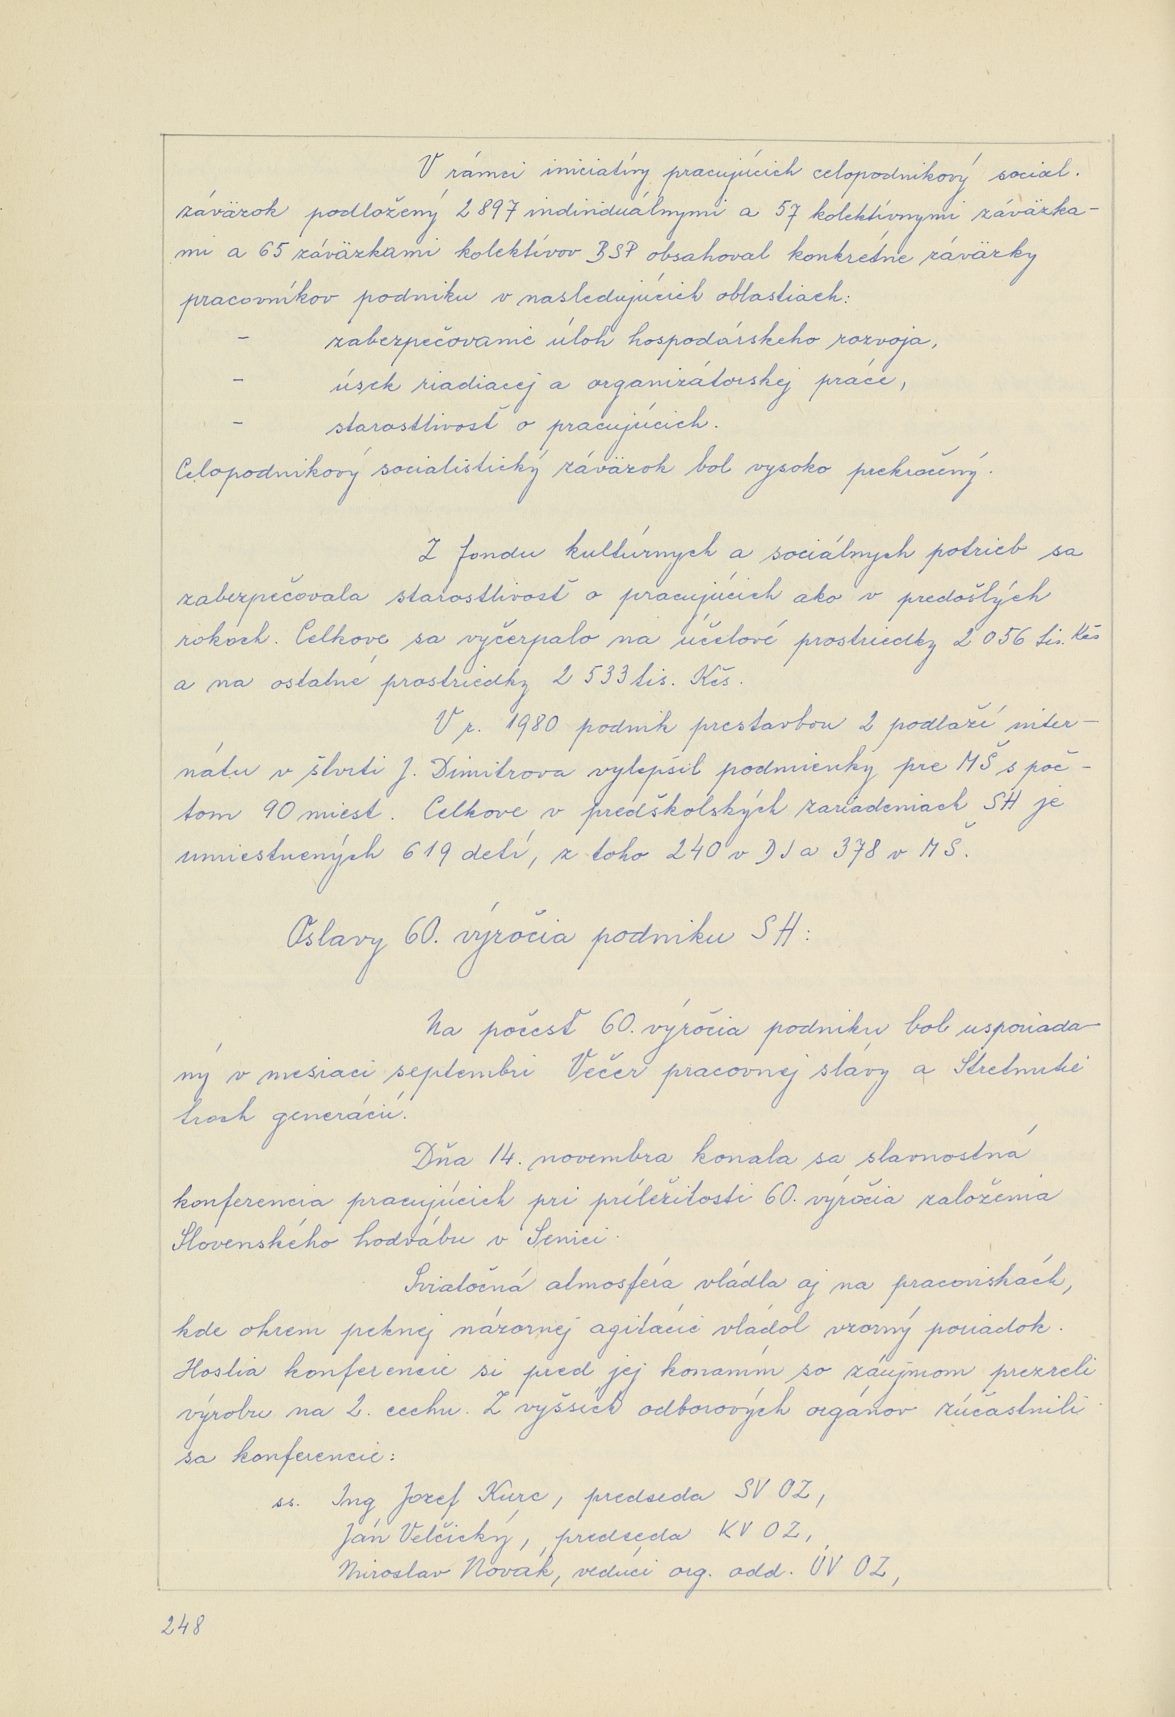 V rámci iniciatívy pracujúcich celopodnikový social.
záväzok podložený 2 897 individuálnymi a 57 kolektívnymi záväzka-
mi a 65 záväzkami kolektívov BSP obsahoval konkrétne záväzky
pracovníkov podniku v nasledujúcich oblastiach:
- zabezpečovanie úloh hospodárskeho rozvoja,
- úsek riadiacej a organizátorskej práce,
- starostlivosť o pracujúcich.
Celopodnikový socialistický záväzok bol vysoko prekročený.
Z fondu kultúrnych a sociálnych potrieb sa
zabezpečovala starostlivosť o pracujúcich ako v predošlých
rokoch. Celkove sa vyčerpalo na účelové prostriedky 2 056 tis. Kčs
a na ostatné prostriedky 2 533 tis. Kčs.
V r. 1980 podnik prestavbou 2 podlaží inter-
nátu v štvrti J. Dimitrova vylepšil podmienky pre MŠ s poč-
tom 90 miest. Celkove v predškolských zariadeniach SH je
umiestnených 619 detí, z toho 240 v DJ a 378 v MŠ.
Oslavy 60. výročia podniku SH:
Na počesť 60. výročia podniku bol usporiada-
ný v mesiaci septembri Večer pracovnej slávy a Stretnutie
troch generácií.
Dňa 14. novembra konala sa slavnostná
konferencia pracujúcich pri príležitosti 60. výročia založenia
Slovenského hodvábu v Senici.
Sviatočná atmosféra vládla aj na pracoviskách,
kde okrem peknej názornej agitácie vládol vzorný poriadok.
Hostia konferencie si pred jej konaním so záujmom prezreli
výrobu na 2. cechu. Z vyššich odborových orgánov zúčastnili
sa konferencie:
ss. Ing Jozef Kurc, predseda SV OZ,
Ján Velčický, predseda KV OZ,
Miroslav Novák, vedúci org. odd. ÚV OZ,
248